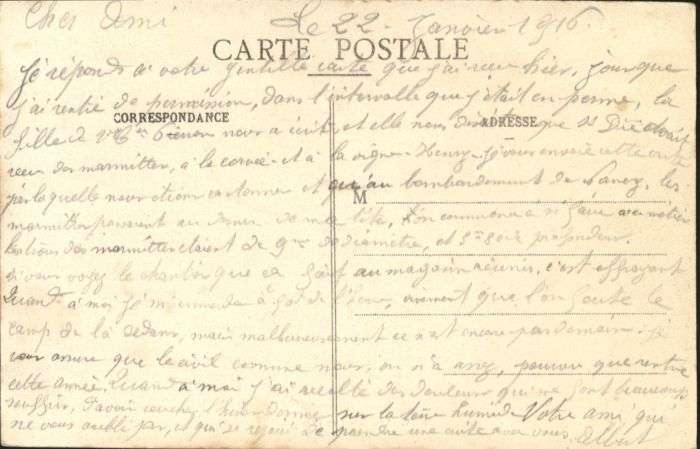 Cher Ami Le 22 Janvier 1916.
CARTE POSTALE
Je réponds à votre gentille carte que j'ai reçu hier, jour que
j'ai rentré de permission, dans l'intervalle que j'était en perme, la
CORRESPONDANCE
ADRESSE
fille de nous a écrit et elle nous que St Dié avait
reçu des marmittes, à la corvée et à la vigne Henry Je vous envoie cette carte
par laquelle nous étions cantonner et qu'au bombardement de Nancy, les
M
marmittes passaient au de ma tête, l'on commence à
les trous des marmittes étaient de de diamètre, et profondeur.
si vous voyez le chantier que ça fait au magasin réunis, c'est effrayant
Quand à moi je m'ennuie à vivement que l'on foute le
camp de là dedans, mais malheureusement ce n'est encore pas demain. je
vous assure que le civil comme nous, on n'a assez, pouvu que rentre
cette année. Quand à moi j'ai recolté des douleurs qui me font beaucoup
souffrir, d'avoir coucher l'hiver dernier sur la terre humide Votre ami, qui
ne vous oublie pas, et qui se rejoui de prendre une cuite avec vous. Albert